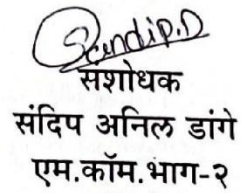 Sandip.D
सशोधक
संदिप अनिल डांगे
एम.कॉम.भाग-२